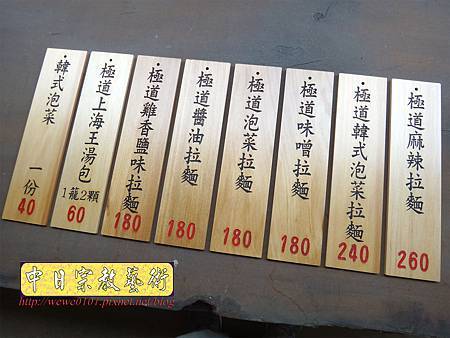 韓式泡菜
一份
40
極道上海王湯包
1籠2顆
60
極道雞香鹽味拉麵
180
極道醬油拉麵
180
極道泡菜拉麵
180
極道味噌拉麵
180
極道韓式泡菜拉麵
240
極道麻辣拉麵
260
中日宗教藝術
http://wewe0101.pixnet.net/blog